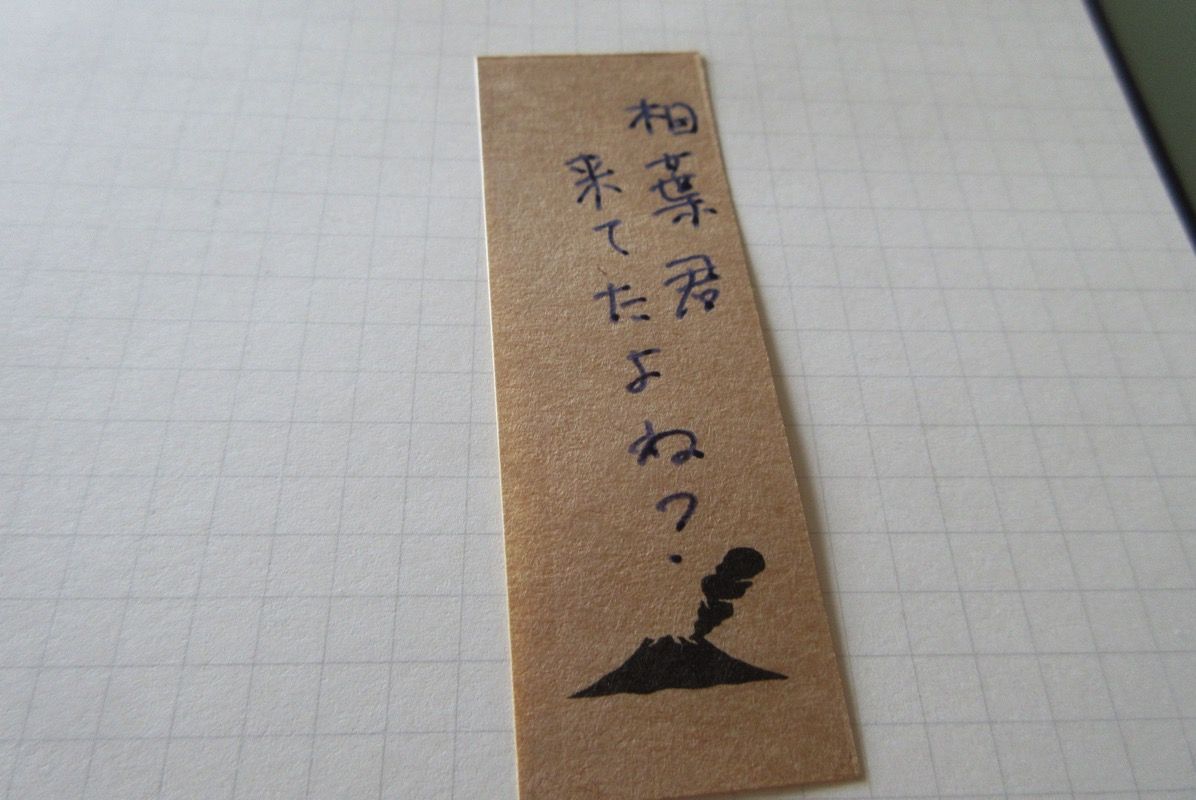 相葉君
来てたよね?